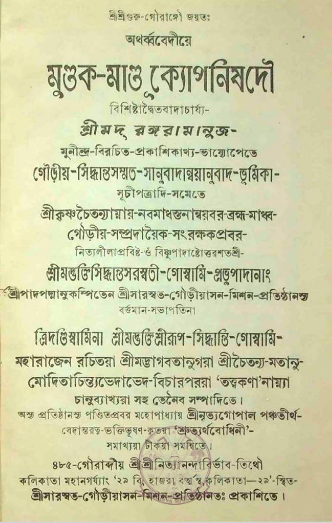 শ্রীশ্রীগুরু-গৌরাঙ্গৌ জয়তঃ
অথর্ব্ববেদীয়ে
মুণ্ডক-মাণ্ডূক্যোপনিষদৌ
বিশিষ্টাদ্বৈতবাদাচার্য্য-
শ্রীমদ্ রঙ্গরামানুজ-
মুনীন্দ্র-বিরচিত-প্রকাশিকাখ্য-ভাষ্যোপেতে
গৌড়ীয়-সিদ্ধান্তসম্মত-সানুবাদান্বয়ানুবাদ-ভূমিকা-
সূচীপত্রাদি-সমেতে
শ্রীকৃষ্ণচৈতন্যাম্নায়-নবমাধস্তনান্বয়বর-ব্রহ্ম-মাধ্ব-
গৌড়ীয়-সম্প্রদায়ৈক-সংরক্ষকপ্রবর-
নিত্যলীলাপ্রবিষ্ট ওঁ বিষ্ণুপাদাষ্টোত্তরশতশ্রী-
শ্রীমদ্ভক্তিসিদ্ধান্তসরস্বতী-গোস্বামি-প্রভুপাদানাং
শ্রীপাদপদ্মানুকম্পিতেন শ্রীসারস্বত-গৌড়ীয়াসন-মিশন-প্রতিষ্ঠানস্য
বর্ত্তমান-সভাপতিনা
ত্রিদণ্ডিস্বামিনা শ্রীমদ্ভক্তিশ্রীরূপ-সিদ্ধান্তি-গোস্বামি-
মহারাজেন রচিতয়া শ্রীমদ্ভাগবতানুগয়া শ্রীচৈতন্য-মতানু-
মোদিতাচিন্ত্যভেদাভেদ-বিচারপরয়া 'তত্ত্বকণা'নাম্ন্যা
চানুব্যাখ্যয়া সহ তেনৈব সম্পাদিতে।
অস্য প্রতিষ্ঠানস্য পণ্ডিতপ্রবর মহোপাধ্যায় শ্রীনৃত্যগোপাল পঞ্চতীর্থ-
বেদান্তরত্ন-ভক্তিভূষণ-কৃতয়া 'শ্রুত্যর্থবোধিনী'-
সমাখ্যয়া টীকয়া সমন্বিতে।
৪৮৫-গৌরাব্দীয় শ্রীশ্রীনিত্যানন্দাবির্ভাব-তিথৌ
কলিকাতা মহানগর্য্যাং '২৯ বি, হাজরা বর্ত্ম'স্থ কলিকাতা—২৯'-স্থিত-
শ্রীসারস্বত-গৌড়ীয়াসন-মিশন-প্রতিষ্ঠানতঃ প্রকাশিতে।